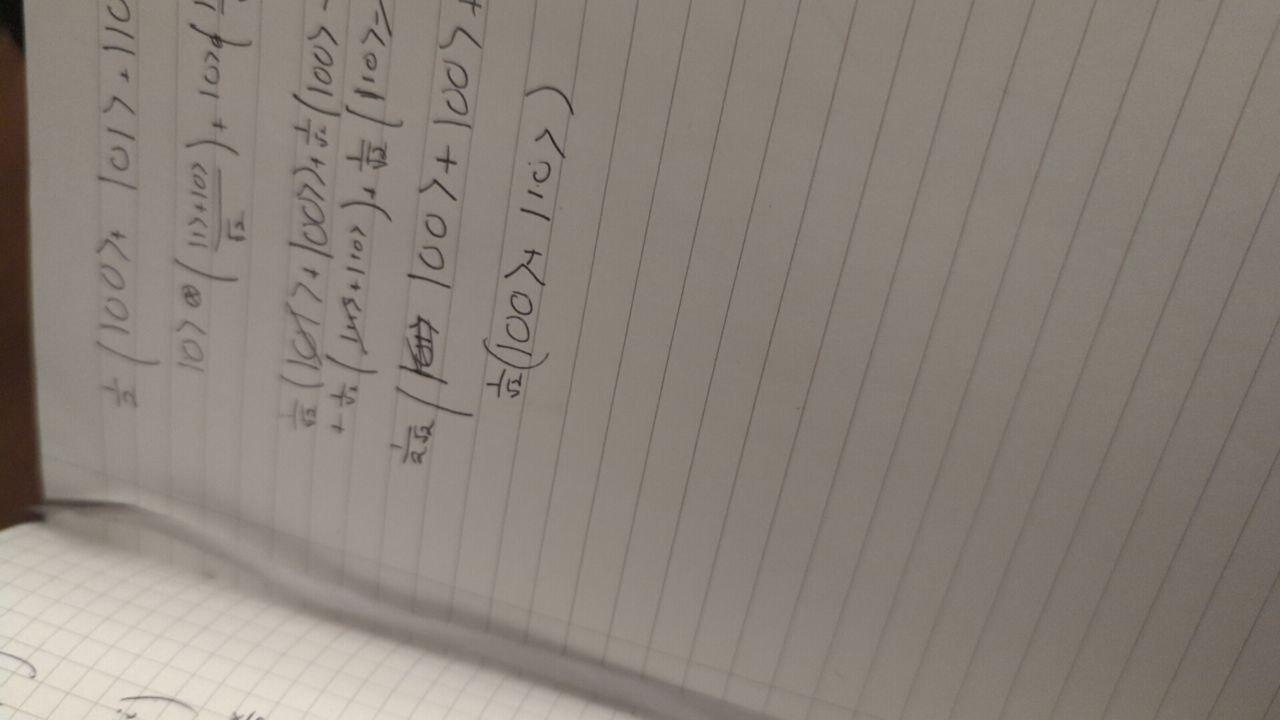 1/2 (|00> + |01> + |10
|0> ⊗ (|1>+|0>/√2) + |0>
1/√2 (|01> + |00>) + 1/√2 (|00> -
+ 1/√2 (|11> + |10>) + 1/√2 (|10> -
1/2√2 ( |00> + |00> +
1/√2 (|00> + |10>)